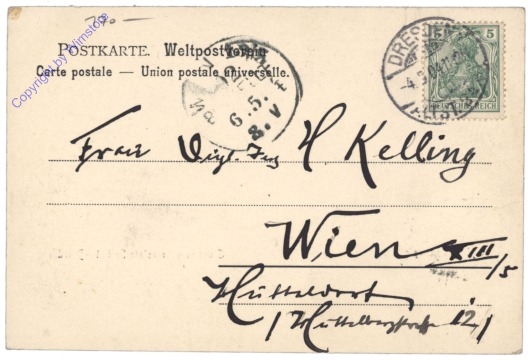 POSTKARTE. Weltpostverein
Carte postale — Union postale universelle.
DRESDEN
5
DEUTSCHES REICH
6.5.
8.V
Frau Dipl. Ing H Kelling
Wien XIII/5
Hütteldorf
/ Hüttelbergstraße 12 /
Copyright by Filmstore